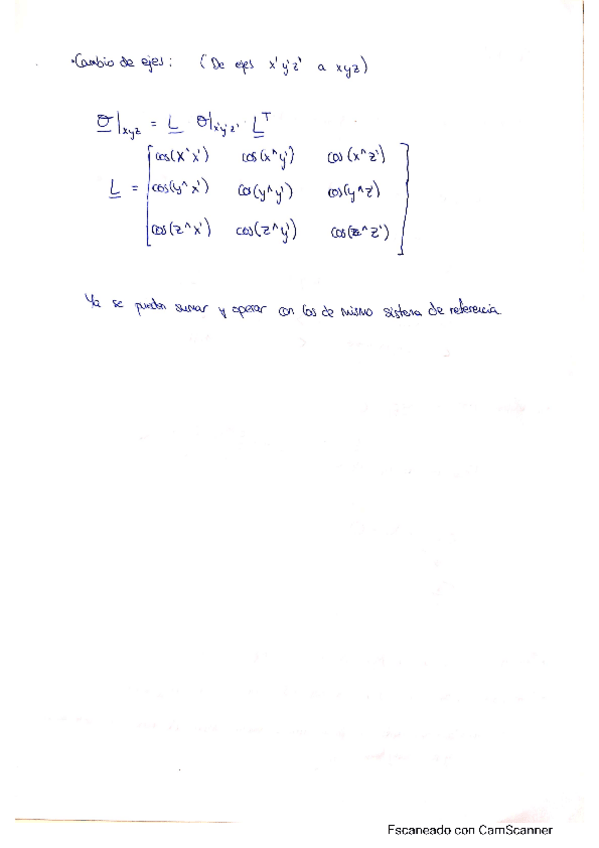 ·Cambio de ejes: (De ejes x'y'z' a xyz)
σ|xyz = L σ|x'y'z' L^T
L = [cos(x^x') cos(x^y') cos(x^z')
cos(y^x') cos(y^y') cos(y^z)
cos(z^x') cos(z^y') cos(z^z')]
Ya se pueden sumar y operar con los de mismo sistema de referencia.
Escaneado con CamScanner